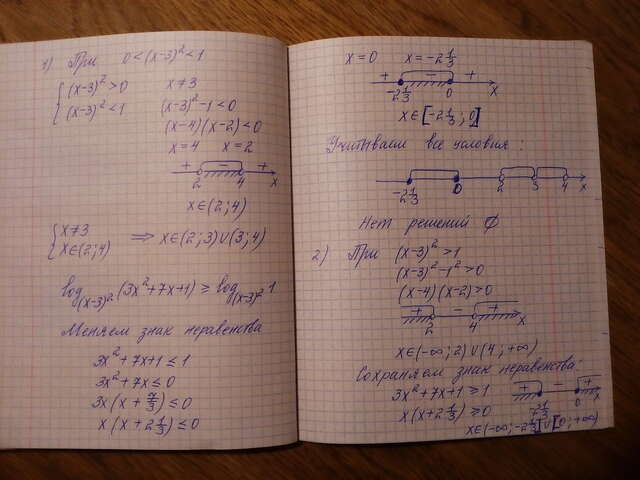 1) При 0<(x-3)²<1
{ (x-3)²>0 x≠3
(x-3)²<1 (x-3)²-1<0
(x-4)(x-2)<0
x=4 x=2
+ - +
2 4 x
x∈(2;4)
{ x≠3
x∈(2;4) ⇒ x∈(2;3)∪(3;4)
log₍ₓ₋₃₎² (3x²+7x+1) ≥ log₍ₓ₋₃₎² 1
Меняем знак неравенства
3x²+7x+1≤1
3x²+7x≤0
3x(x+7/3)≤0
x(x+2 1/3)≤0
x=0 x=-2 1/3
+ - +
-2 1/3 0 x
x∈[-2 1/3; 0]
Учитываем все условия:
-2 1/3 0 2 3 4 x
Нет решений ∅
2) При (x-3)²>1
(x-3)²-1²>0
(x-4)(x-2)>0
+ - +
2 4 x
x∈(-∞;2)∪(4;+∞)
Сохраняем знак неравенства:
3x²+7x+1≥1
x(x+2 1/3)≥0
+ - +
0 x
x∈(-∞;-2 1/3]∪[0;+∞)